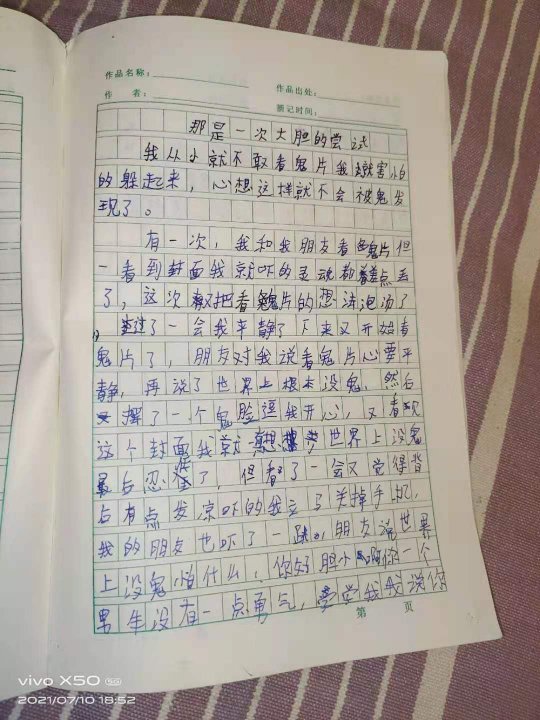 作品名称：
作品出处：
作 者：
摘记时间：
那是一次大胆的尝试
我从小就不敢看鬼片我就害怕
的躲起来，心想这样就不会被鬼发
现了。
有一次，我和我朋友看鬼片但
一看到封面我就吓的灵魂都差点丢
了，这次把看鬼片的想法泡汤了
过了一会我平静了下来又开始看
鬼片了，朋友对我说看鬼片心要平
静，再说了世界上根本没鬼，然后
摆了一个鬼脸逗我开心，又看
这个封面我就想世界上没鬼
最后忍住了，但看了一会又觉得背
后有点发凉吓的我立了关掉手机，
我的朋友也吓了一跳，朋友说世界
上没鬼怕什么，你好胆小啊你一个
男生没有一点勇气，我说你
第 页
vivo X50 5G
2021/07/10 18:52